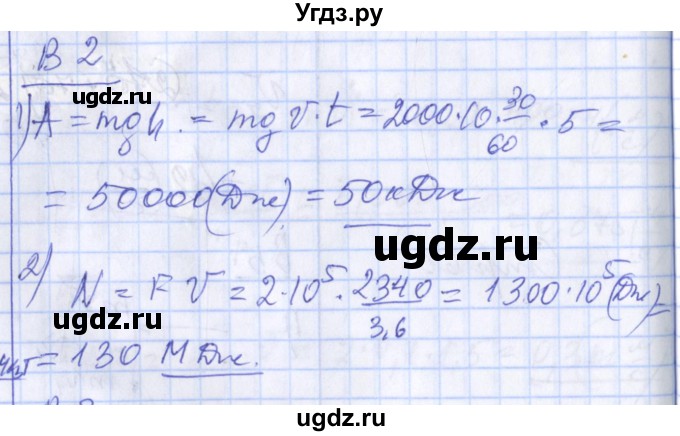 Угдз.ру
В 2
ugdz.ru
1) A = mgh = mgV·t = 2000·10·30/60·5 =
= 50000(Дж) = 50кДж
ugdz.ru
ugdz.ru
2) N = FV = 2·10⁵·2340/3,6 = 1300·10⁵(Дж)=
ugdz.ru
= 130 МДж.
ugdz.ru
ugdz.ru